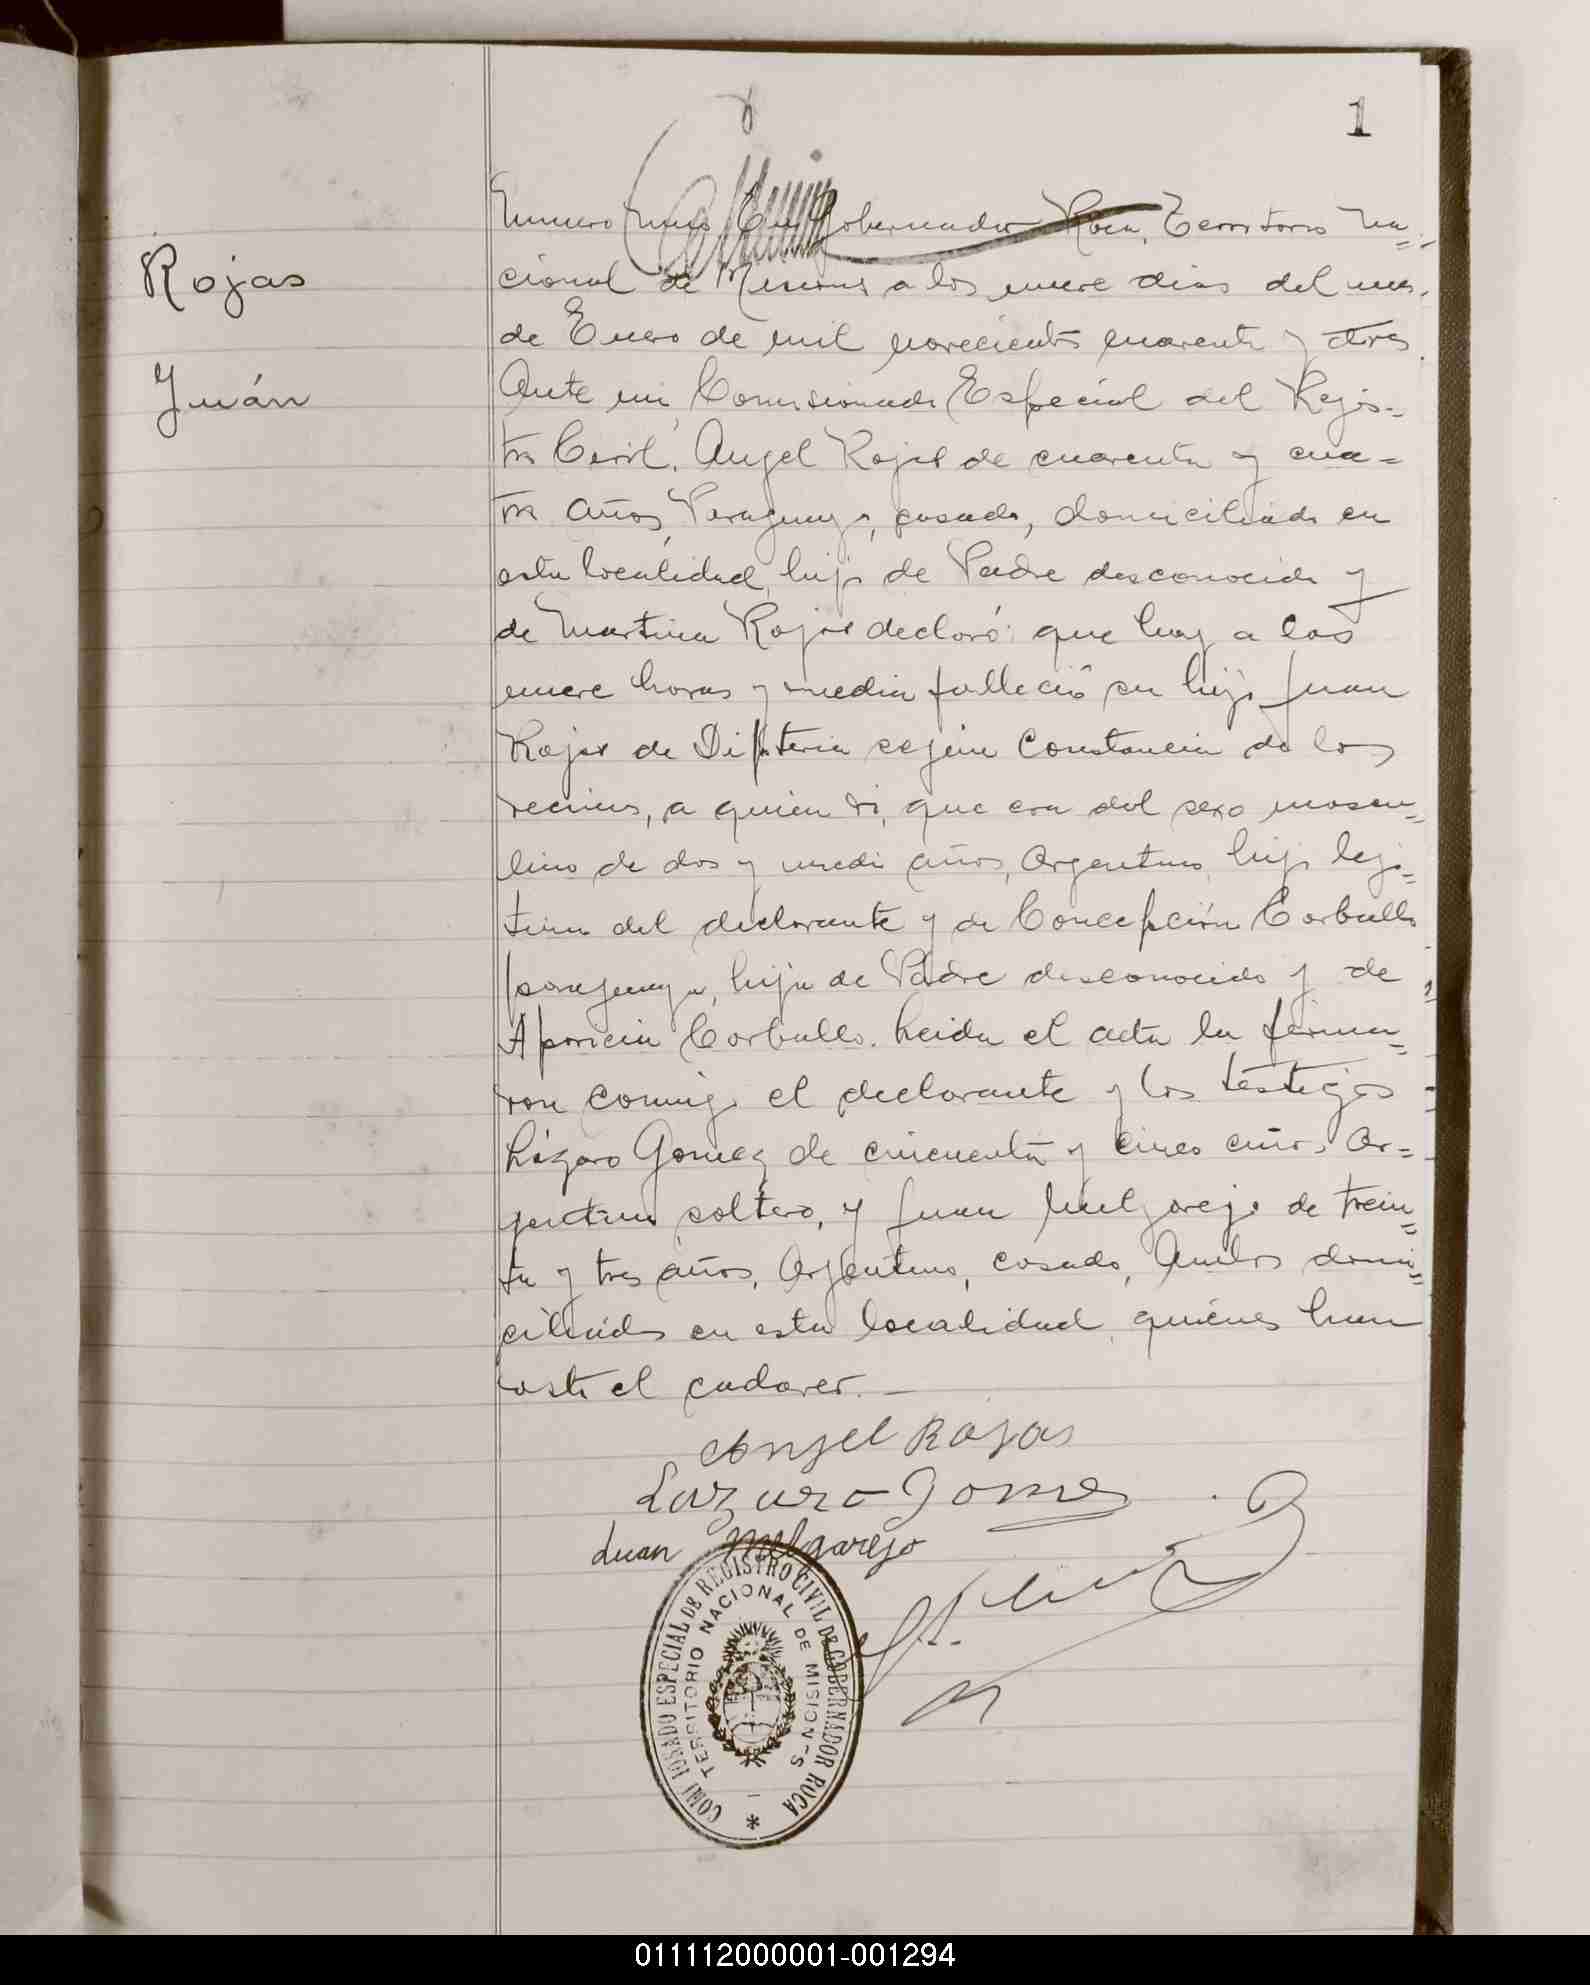 1
Rojas
Juán
Numero Uno En Gobernador Roca, Territorio Na=
cional de Misiones a los nueve dias del mes
de Enero de mil novecientos cuarenta y tres
Ante mi, Comisionado Especial del Rejis=
tro Civil, Angel Rojas de cuarenta y cua=
tro años, Paraguayo, casado, domiciliado en
esta localidad, hijo de Padre desconocido y
de Martina Rojas declaró: que hoy a las
nueve horas y media falleció su hijo Juan
Rojas de Difteria segun Constancia de los
vecinos, a quien vi, que era del sexo mascu=
lino de dos y medio años, Argentino, hijo leji=
timo del declarante y de Concepción Carballo
paraguaya, hija de Padre desconocido y de
Aparicia Carballo. Leida el acta la firma=
ron conmigo el declarante y los testigos
Lázaro Gomez de cincuenta y cinco años Ar=
gentino soltero, y Juan Melgarejo de trein=
ta y tres años, Argentino, casado, Ambos domi=
ciliados en esta localidad, quiénes han
visto el cadaver.—
Angel Rojas
Lazaro Gomez
Juan Melgarejo
COMISIONADO ESPECIAL DE REGISTRO CIVIL DE GOBERNADOR ROCA
TERRITORIO NACIONAL DE MISIONES
011112000001-001294